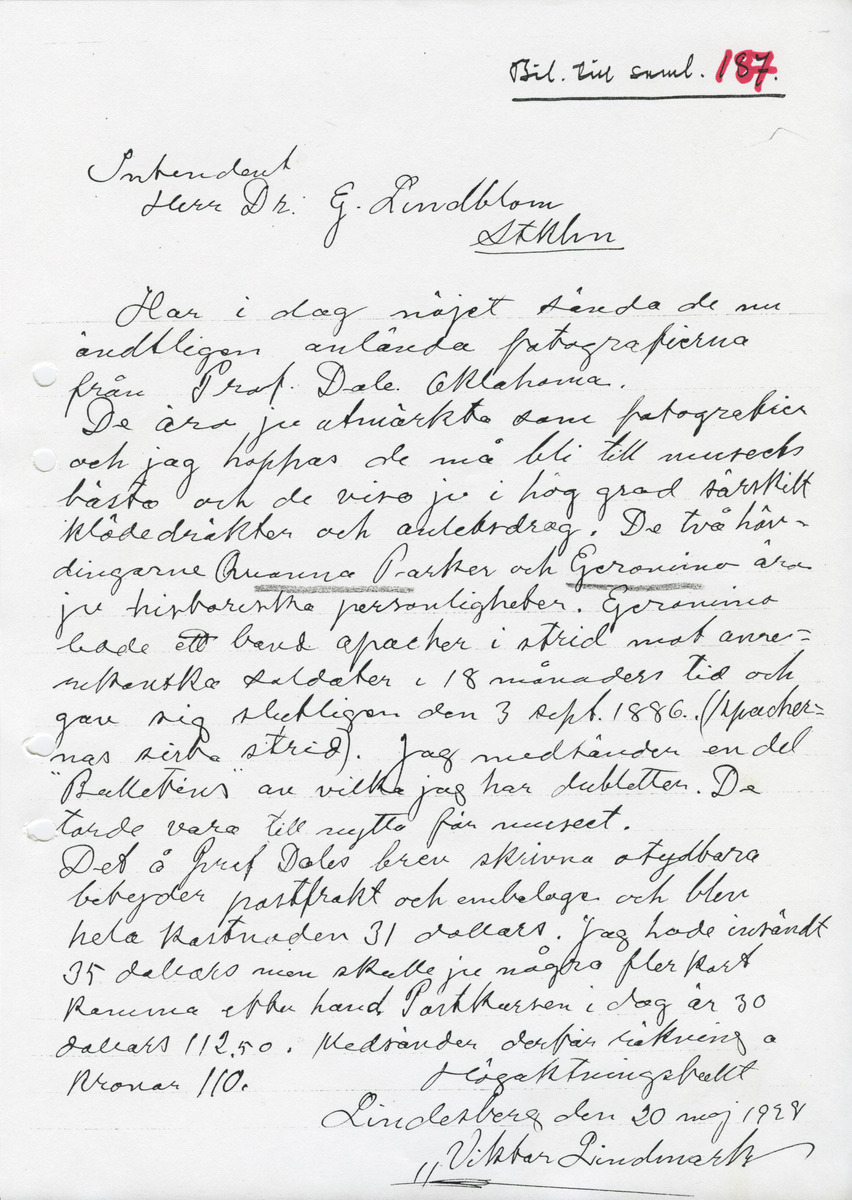 Bil. till saml. 187.
Intendent
Herr Dr. G. Lindblom
Stkhlm
Har i dag nöjet sända de nu
ändtligen anlända fotografierna
från Prof. Dale. Oklahoma.
De äro ju utmärkta som fotografier
och jag hoppas de må bli till museets
bästa och de visa ju i hög grad särskilt
klädedräkter och anletsdrag. De två höv-
dingarne Quanna Parker och Geronimo äro
ju historiska personligheter. Geronimo
hade ett band apacher i strid mot ame-
rikanska soldater i 18 månaders tid och
gav sig slutligen den 3 sept. 1886. (Apacher-
nas sista strid). Jag medsänder en del
"Bulletins" av vilka jag har dubletter. De
torde vara till nytta för museet.
Det å Prof Dales brev skrivna otydbara
betyder postfrakt och embalage och blev
hela kostnaden 31 dollars. Jag hade insändt
35 dollars men skulle ju några fler kort
komma efter hand Postkursen i dag är 30
dollars 112.50. Medsänder derför räkning a
Kronor 110.
Högaktningsfullt
Lindesberg den 20 maj 1928
Viktor Lindmark